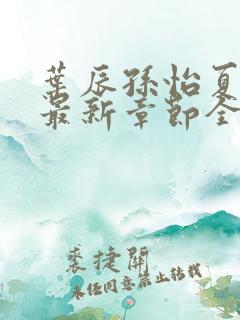 葉辰孫怡夏
最新章節全
裘捷開
未經同意禁止轉載